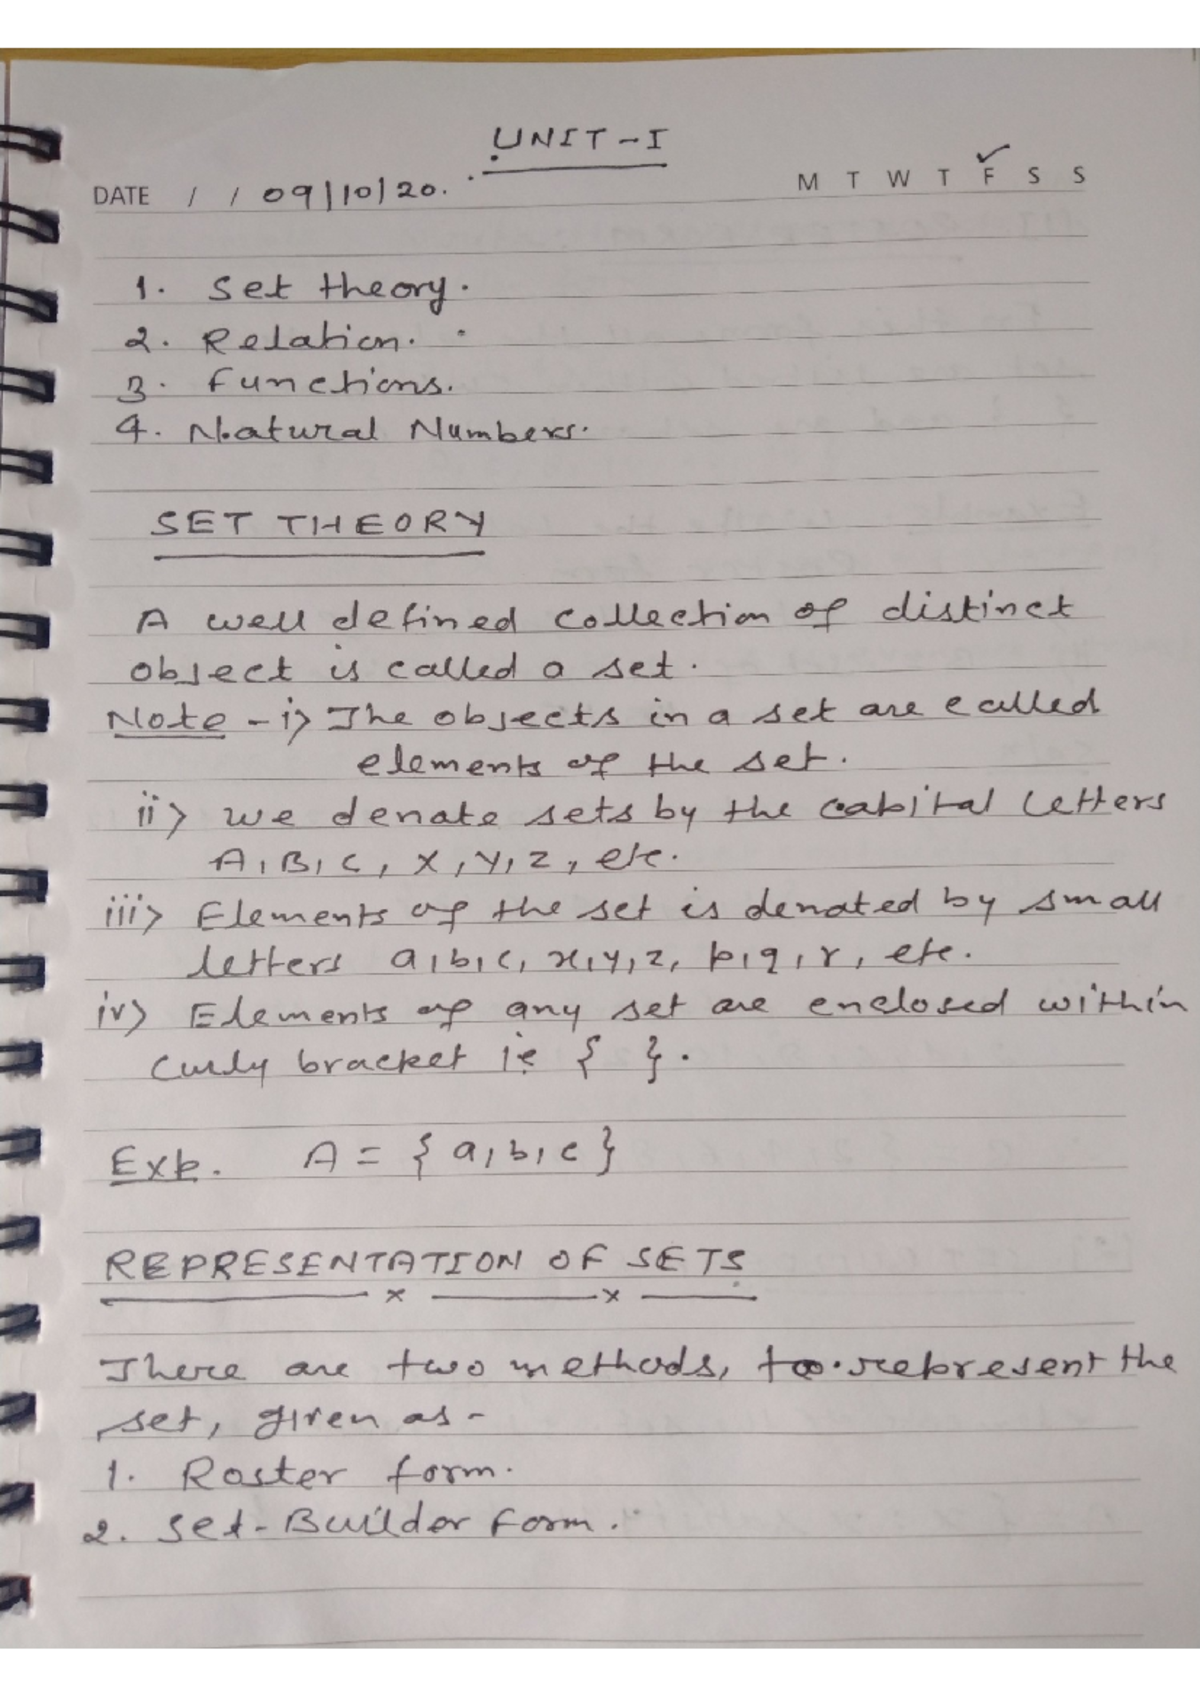 UNIT-I
DATE / / 09/10/20. M T W T F S S
1. Set theory.
2. Relation.
3. Functions.
4. Natural Numbers.
SET THEORY
A well defined collection of distinct
object is called a set.
Note - i) The objects in a set are called
elements of the set.
ii) we denote sets by the capital letters
A, B, C, X, Y, Z, etc.
iii) Elements of the set is denoted by small
letters a, b, c, x, y, z, p, q, r, etc.
iv) Elements of any set are enclosed within
curly bracket ie { }.
Exp. A = { a, b, c }
REPRESENTATION OF SETS
There are two methods, to represent the
set, given as -
1. Roster form.
2. Set-Builder Form.